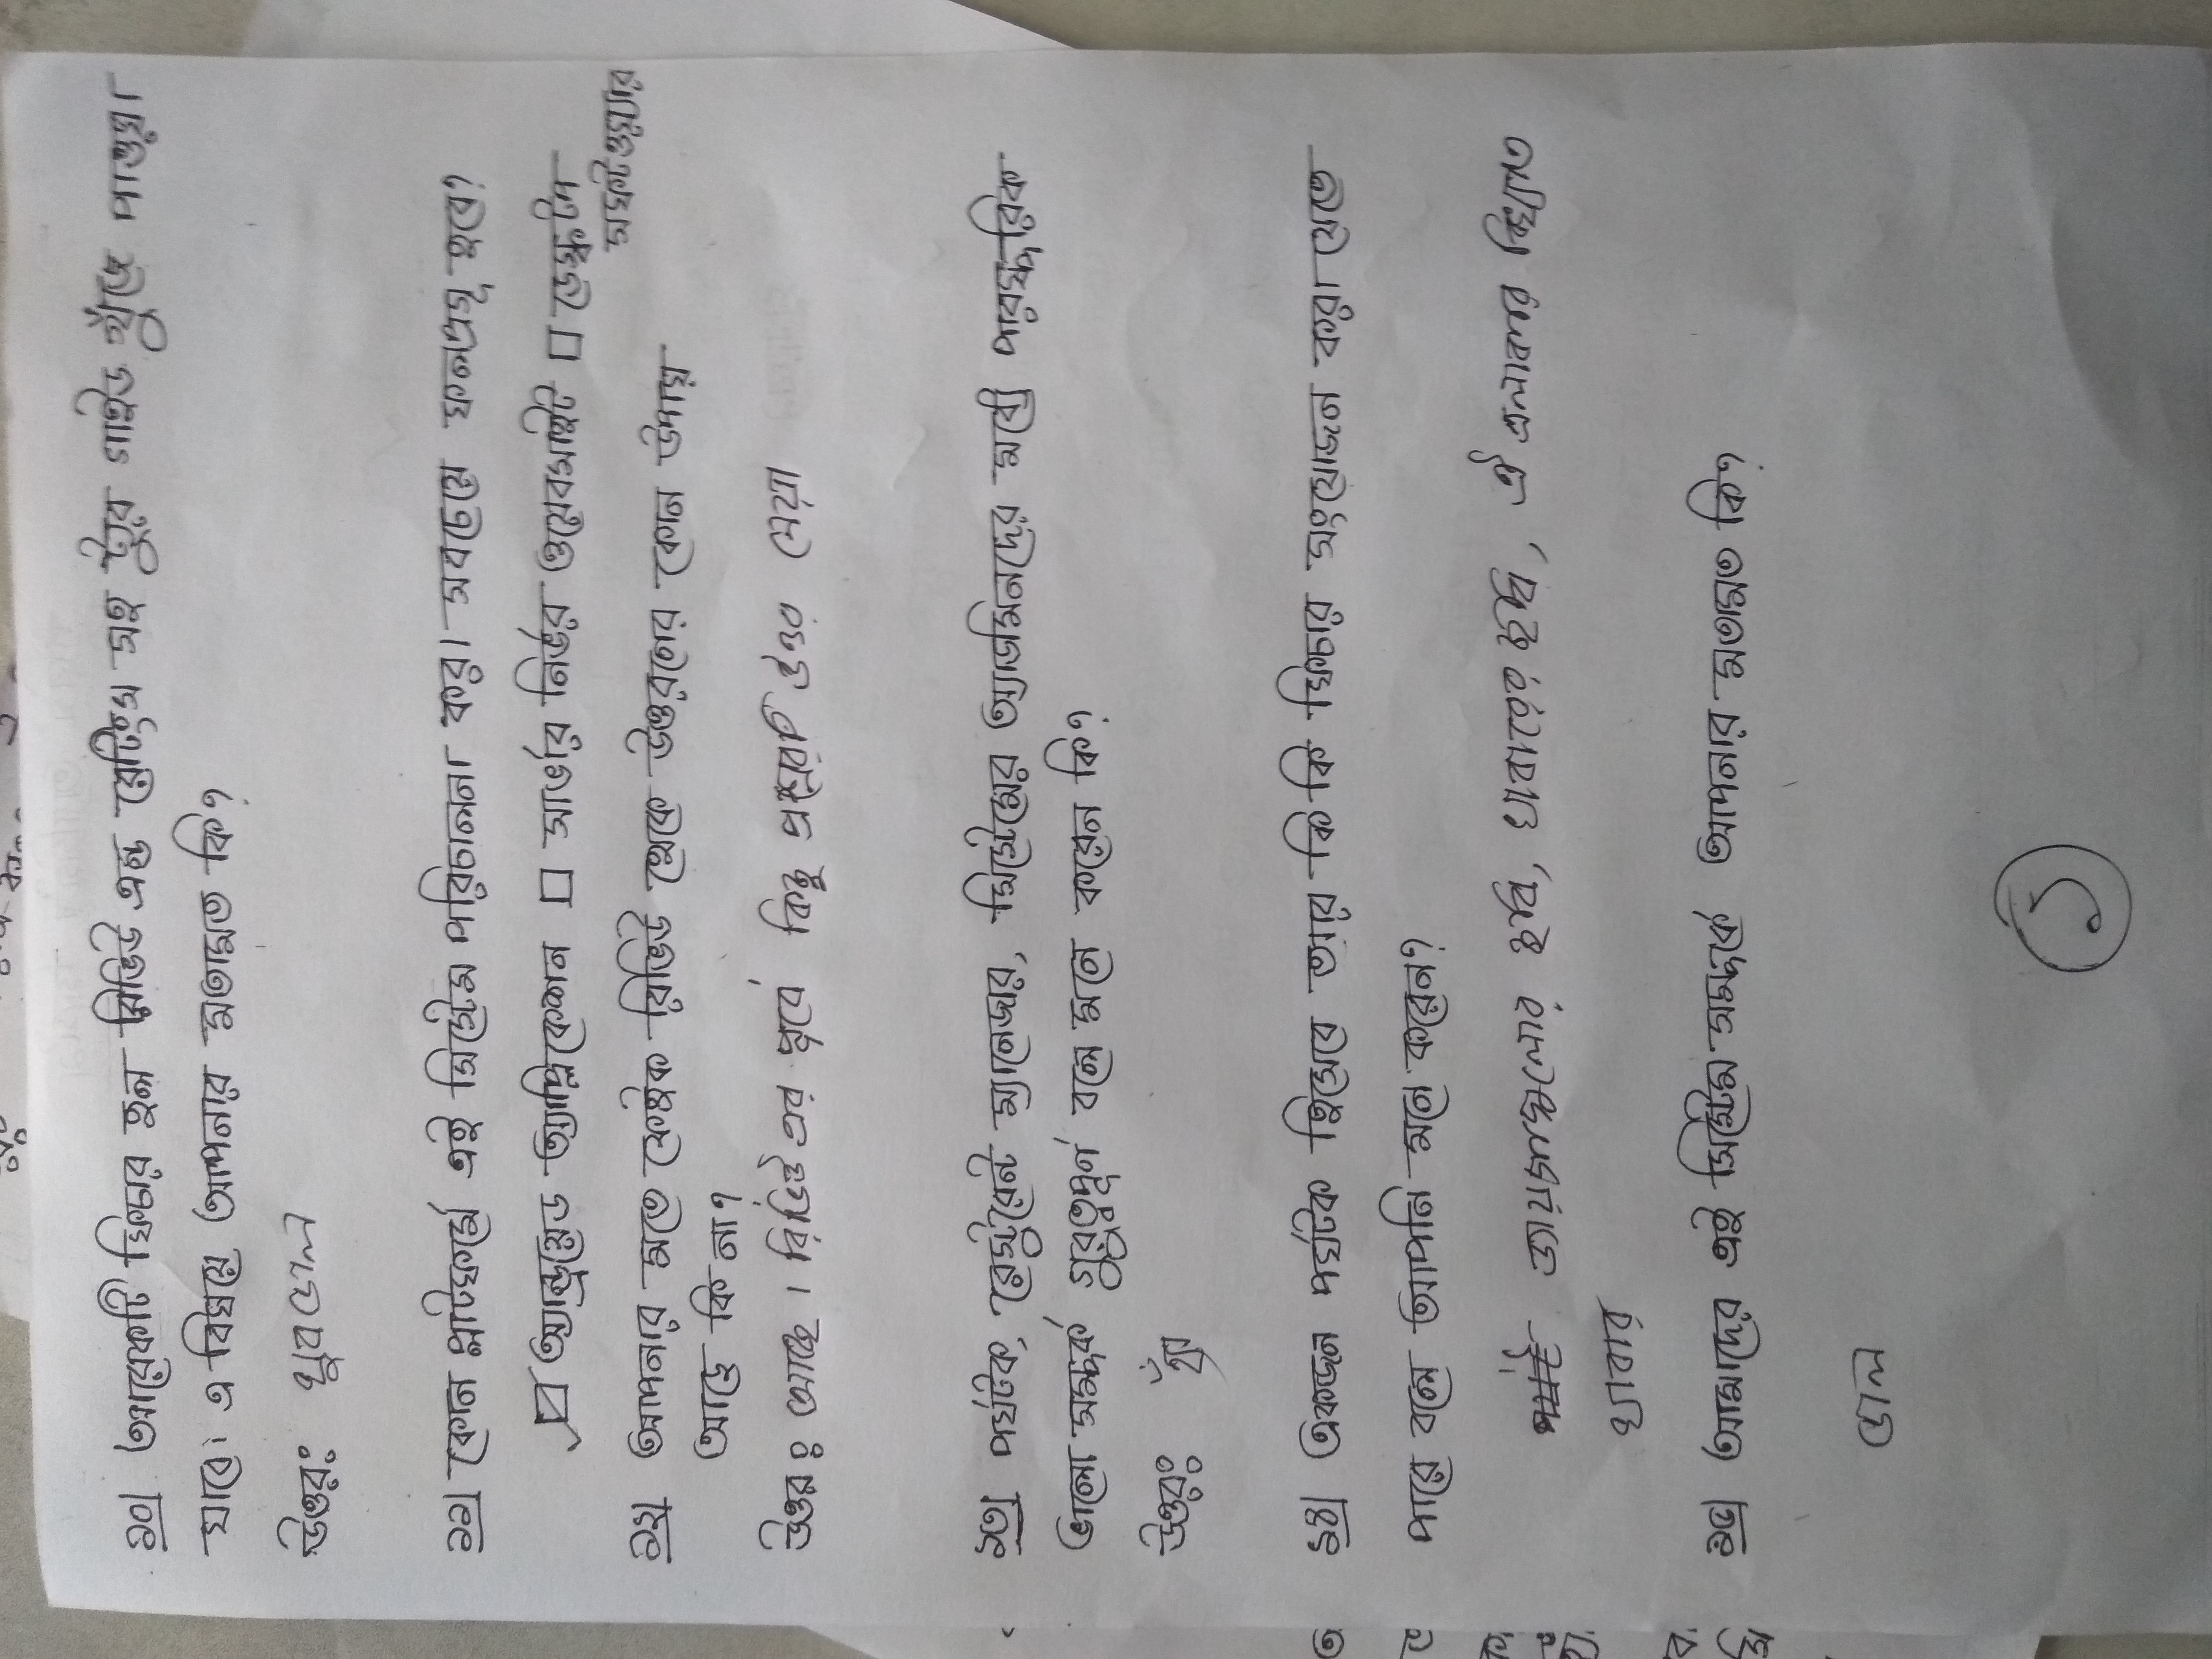 ১০| আরেকটি ফিচার হল রিভিউ এন্ড রেটিংস সহ ট্যুর গাইড খুঁজে পাওয়া
যাবে। এ বিষয়ে আপনার মতামত কি?
উত্তরঃ খুব ভাল
১১| কোন প্লাটফর্মে এই সিস্টেম পরিচালনা করা সবচেয়ে ফলপ্রসূ হবে?
☑ অ্যান্ড্রয়েড অ্যাপ্লিকেশন □ সার্ভার নির্ভর ওয়েবসাইট □ ডেস্কটপ
সফটওয়্যার
১২| আপনার মতে ফেইক রিভিউ থেকে উত্তরণের কোন উপায়
আছে কি না?
উত্তরঃ আছে। রিভিউ এর পূর্বে কিছু প্রশ্নের উত্তর নেয়া
১৩| পর্যটক, রেস্টুরেন্ট ম্যানেজার, সিস্টেমের অ্যাডমিনদের মধ্যে পারস্পরিক
ভালো সম্পর্ক গুরুত্বপূর্ণ বলে মনে করেন কি?
উত্তরঃ হ্যাঁ
১৪| একজন পর্যটক হিসেবে আর কি কি ফিচার সংযোজন করা যেতে
পারে বলে আপনি মনে করেন?
জায়গাগুলোর ছবি, খাবারের ছবি, ঐ এলাকার বিখ্যাত
খাবার
১৫| আমাদের এই সিস্টেম সম্পর্কে আপনার মতামত কি?
ভাল
১